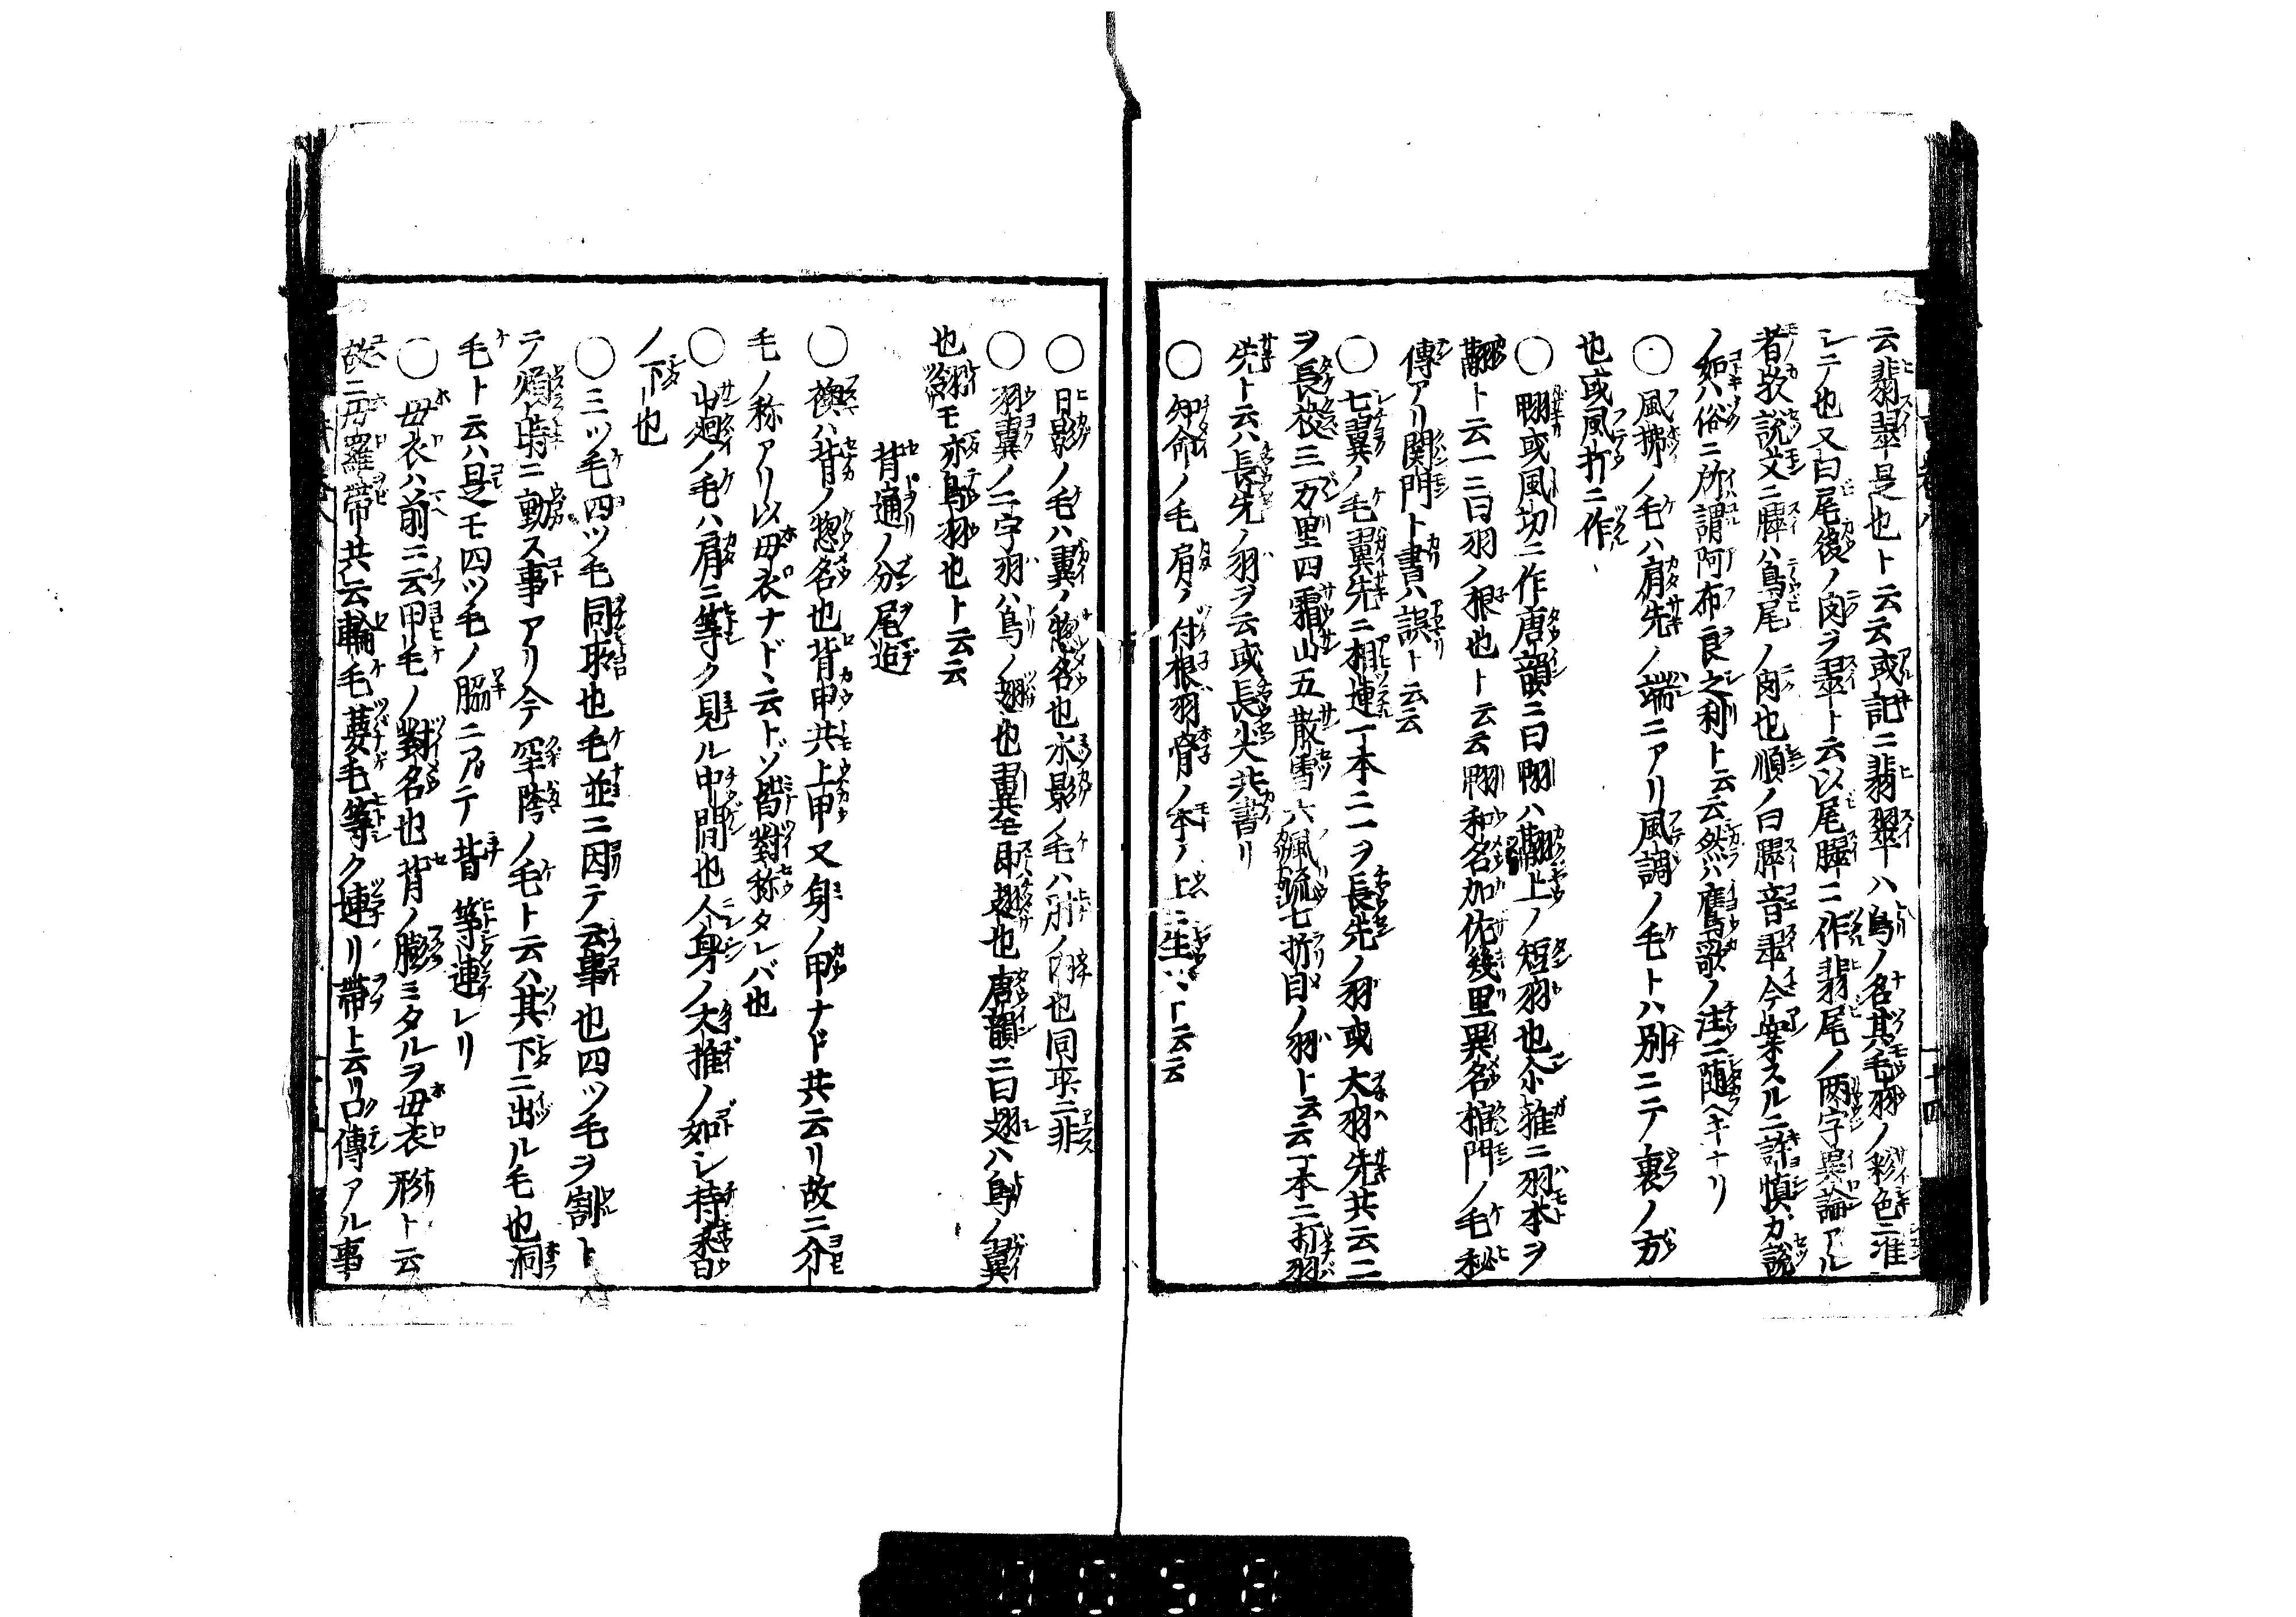 云翡翠是也ト云云或記ニ翡翠ハ鳥ノ名其毛羽ノ彩色ニ准
シテ也又曰尾後ノ肉ヲ翠ト云以尾臎ニ作翡尾ノ両字異論アル
者歟説文ニ臎ハ鳥尾ノ肉也順ノ曰臎音翠今案スルニ許慎カ説
ノ如ハ俗ニ所謂阿布良之利ト云云然ハ鷹歌ノ注ニ随ヘキナリ
◯風拂ノ毛ハ肩先ノ端ニアリ風調ノ毛トハ別ニテ裏ノ方
也或風打ニ作
◯翈或風切ニ作唐韻ニ曰翈ハ翮上ノ短羽也尒雅ニ羽本ヲ
翮ト云一ニ曰羽ノ根也ト云云翈和名加佐幾里異名楗門ノ毛秘
傳アリ関門ト書ハ誤ト云云
◯七翼ノ毛翼先ニ相連一本ニ一ヲ長先ノ羽或大羽先共云二
ヲ長夜三万里四霜山五散雪六風流七折目ノ羽ト云云一本ニ打羽
先ト云ハ長先ノ羽ヲ云或長尖共書リ
◯知命ノ毛肩ノ付根羽骨ノ本ノ上ニ生ハト云云
◯日影ノ毛ハ翼ノ惣名也水影ノ毛ハ肘ノ内也同来ニ非
◯羽翼ノ二字羽ハ鳥ノ翅也翼モ即翅也唐韻ニ曰翅ハ鳥ノ翼
也翎モ亦鳥羽也ト云云
背通ノ分尾迄
◯襖ハ背ノ惣名也背甲共上甲又身ノ甲ナド共云リ故ニ介
毛ノ称アリ以毋衣ナドヽ云トゾ皆對称タレバ也
◯山廻ノ毛ハ肩ニ等ク見ル中間也人身ノ大推ノ如シ待香白
ノ下也
◯三ツ毛四ツ毛同来也毛並ニ因テ云事也四ツ毛ヲ割ト
テ煩時ニ動ス事アリ今窄陰ノ毛ト云ハ其下ニ出ル毛也洞
毛ト云ハ是モ四ツ毛ノ脇ニアテ背等連レリ
◯毋衣ハ前ニ云甲毛ノ對名也背ノ膨ミタルヲ毋衣形ト云
故ニ毋羅帶共云輪毛蔓毛等ク連リ帶ト云リ口傳アル事